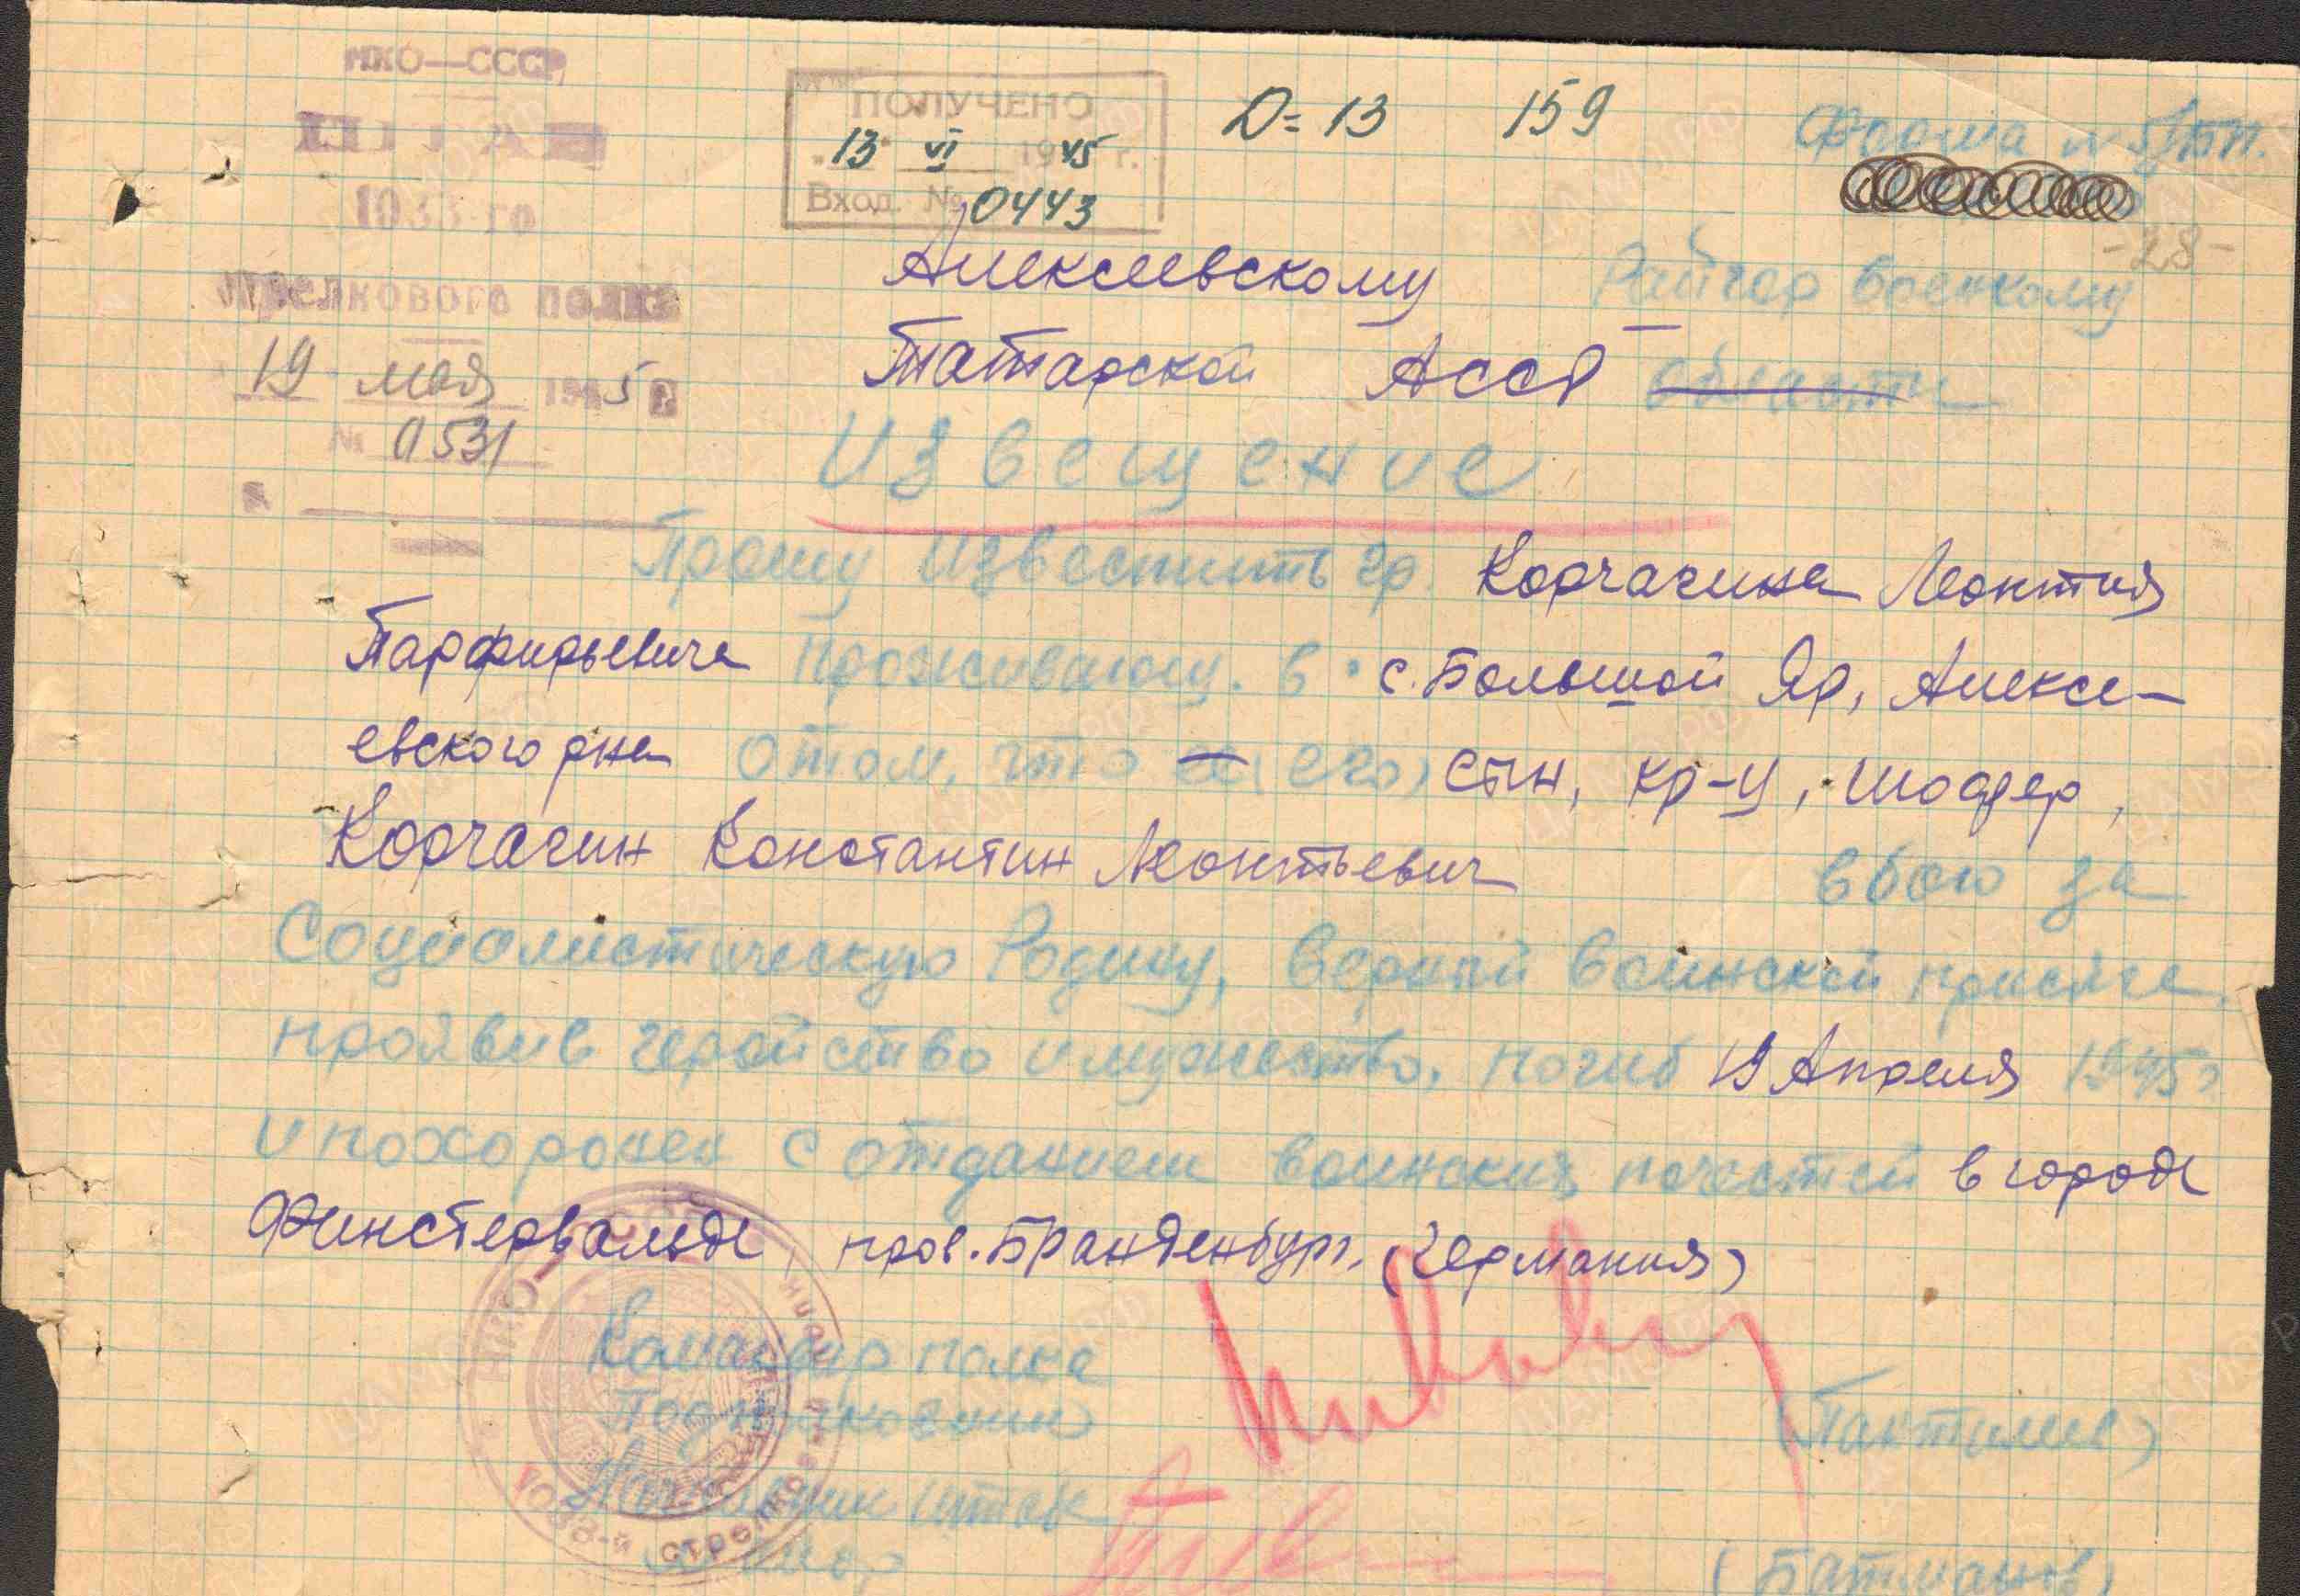 НКО—СССР
ШТАБ
1033-го
стрелкового полка
19 мая 1945 г.
№ 0531
ПОЛУЧЕНО
13 VI 1945 г.
Вход. № 0443
D=13 159
Форма №
-28-
Алексеевскому Райгор Военкому
Татарской АССР области
Извещение
Прошу известить гр. Корчагина Леонтия
Парфирьевича проживающ. в с. Большой Яр, Алексе-
евского рна о том, что ее (его) сын, кр-ц, шофер,
Корчагин Константин Леонтьевич в бою за
Социалистическую Родину, верный воинской присяге,
проявив геройство и мужество, погиб 19 Апреля 1945г
и похоронен с отданием воинских почестей в городе
Финстервальде, пров. Бранденбург, (Германия)
Командир полка
Подполковник (Пантилеев)
Начальник штаба
Майор (Батманов)
НКО
1033-й стрелковый